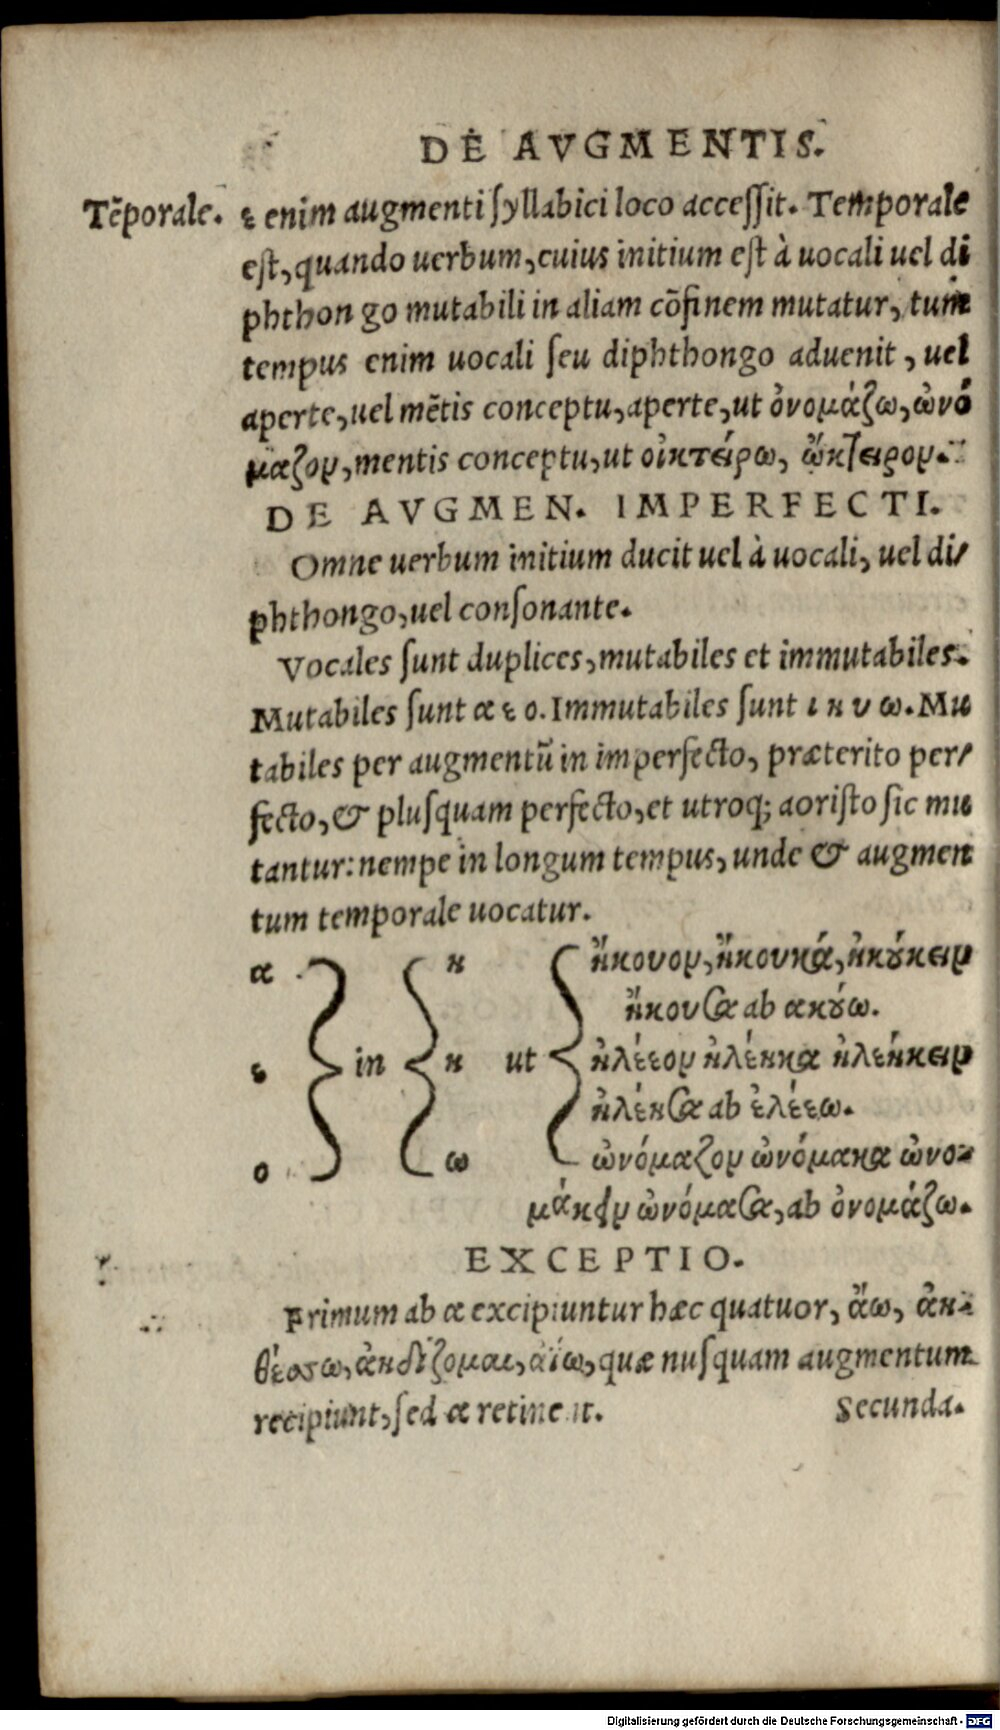 DE AVGMENTIS.
Tēporale. ε enim augmenti ſyllabici loco acceſſit. Temporale
eſt, quando uerbum, cuius initium eſt à uocali uel di
phthon go mutabili in aliam cōfinem mutatur, tum
tempus enim uocali ſeu diphthongo aduenit, uel
aperte, uel mētis conceptu, aperte, ut ὀνομάζω, ὠνό
μαζον, mentis conceptu, ut οἰκτείρω, ᾤκτειρον.
DE AVGMEN. IMPERFECTI.
Omne uerbum initium ducit uel à uocali, uel di/
phthongo, uel conſonante.
Vocales ſunt duplices, mutabiles et immutabiles.
Mutabiles ſunt α ε ο. Immutabiles ſunt ι η υ ω. Mu
tabiles per augmentū in imperfecto, præterito per/
fecto, & pluſquam perfecto, et utroq; aoriſto ſic mu
tantur: nempe in longum tempus, unde & augmen
tum temporale uocatur.
α η ἤκουον, ἤκουκά, ἠκούκειν
ἤκουσα ab ακούω.
ε in η ut ἠλέεον ἠλέηκα ἠλεήκειν
ἠλέησα ab ἐλέεω.
ο ω ὠνόμαζον ὠνόμακα ὠνο-
μάκειν ὠνόμασα, ab ὀνομάζω.
EXCEPTIO.
Primum ab α excipiuntur hæc quatuor, ἄω, ἀη-
θέσσω, ἀηδίζομαι, ἀΐω, quæ nuſquam augmentum
recipiunt, ſed α retinent. Secunda.
Digitalisierung gefördert durch die Deutsche Forschungsgemeinschaft - DFG